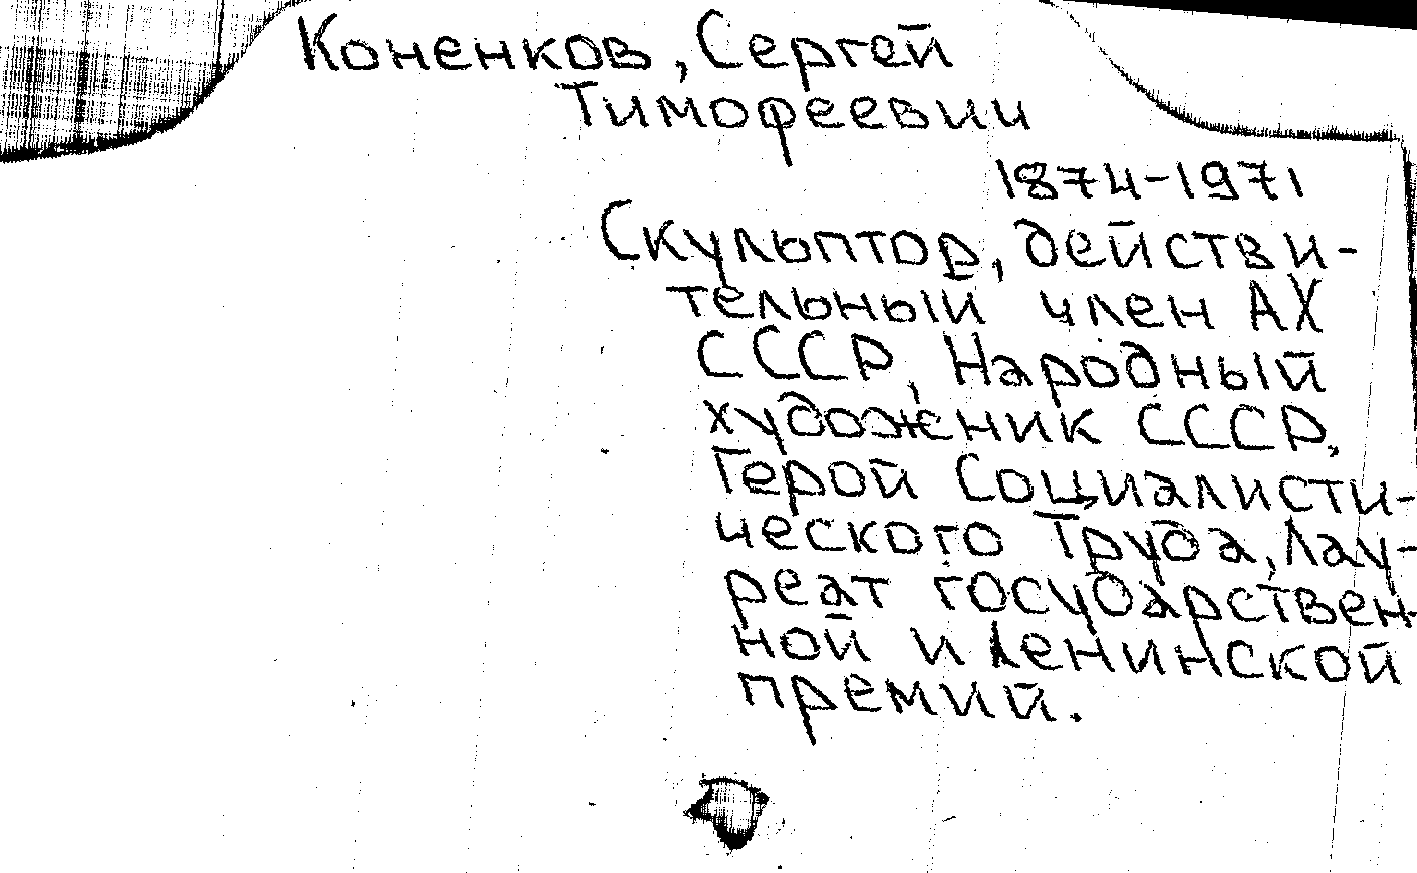 Коненков, Сергей
Тимофеевич
1874-1971
Скульптор, действи-
тельный член АХ
СССР, Народный
художник СССР,
Герой Социалисти-
ческого Труда, лау-
реат государствен-
ной и Ленинской
премий.